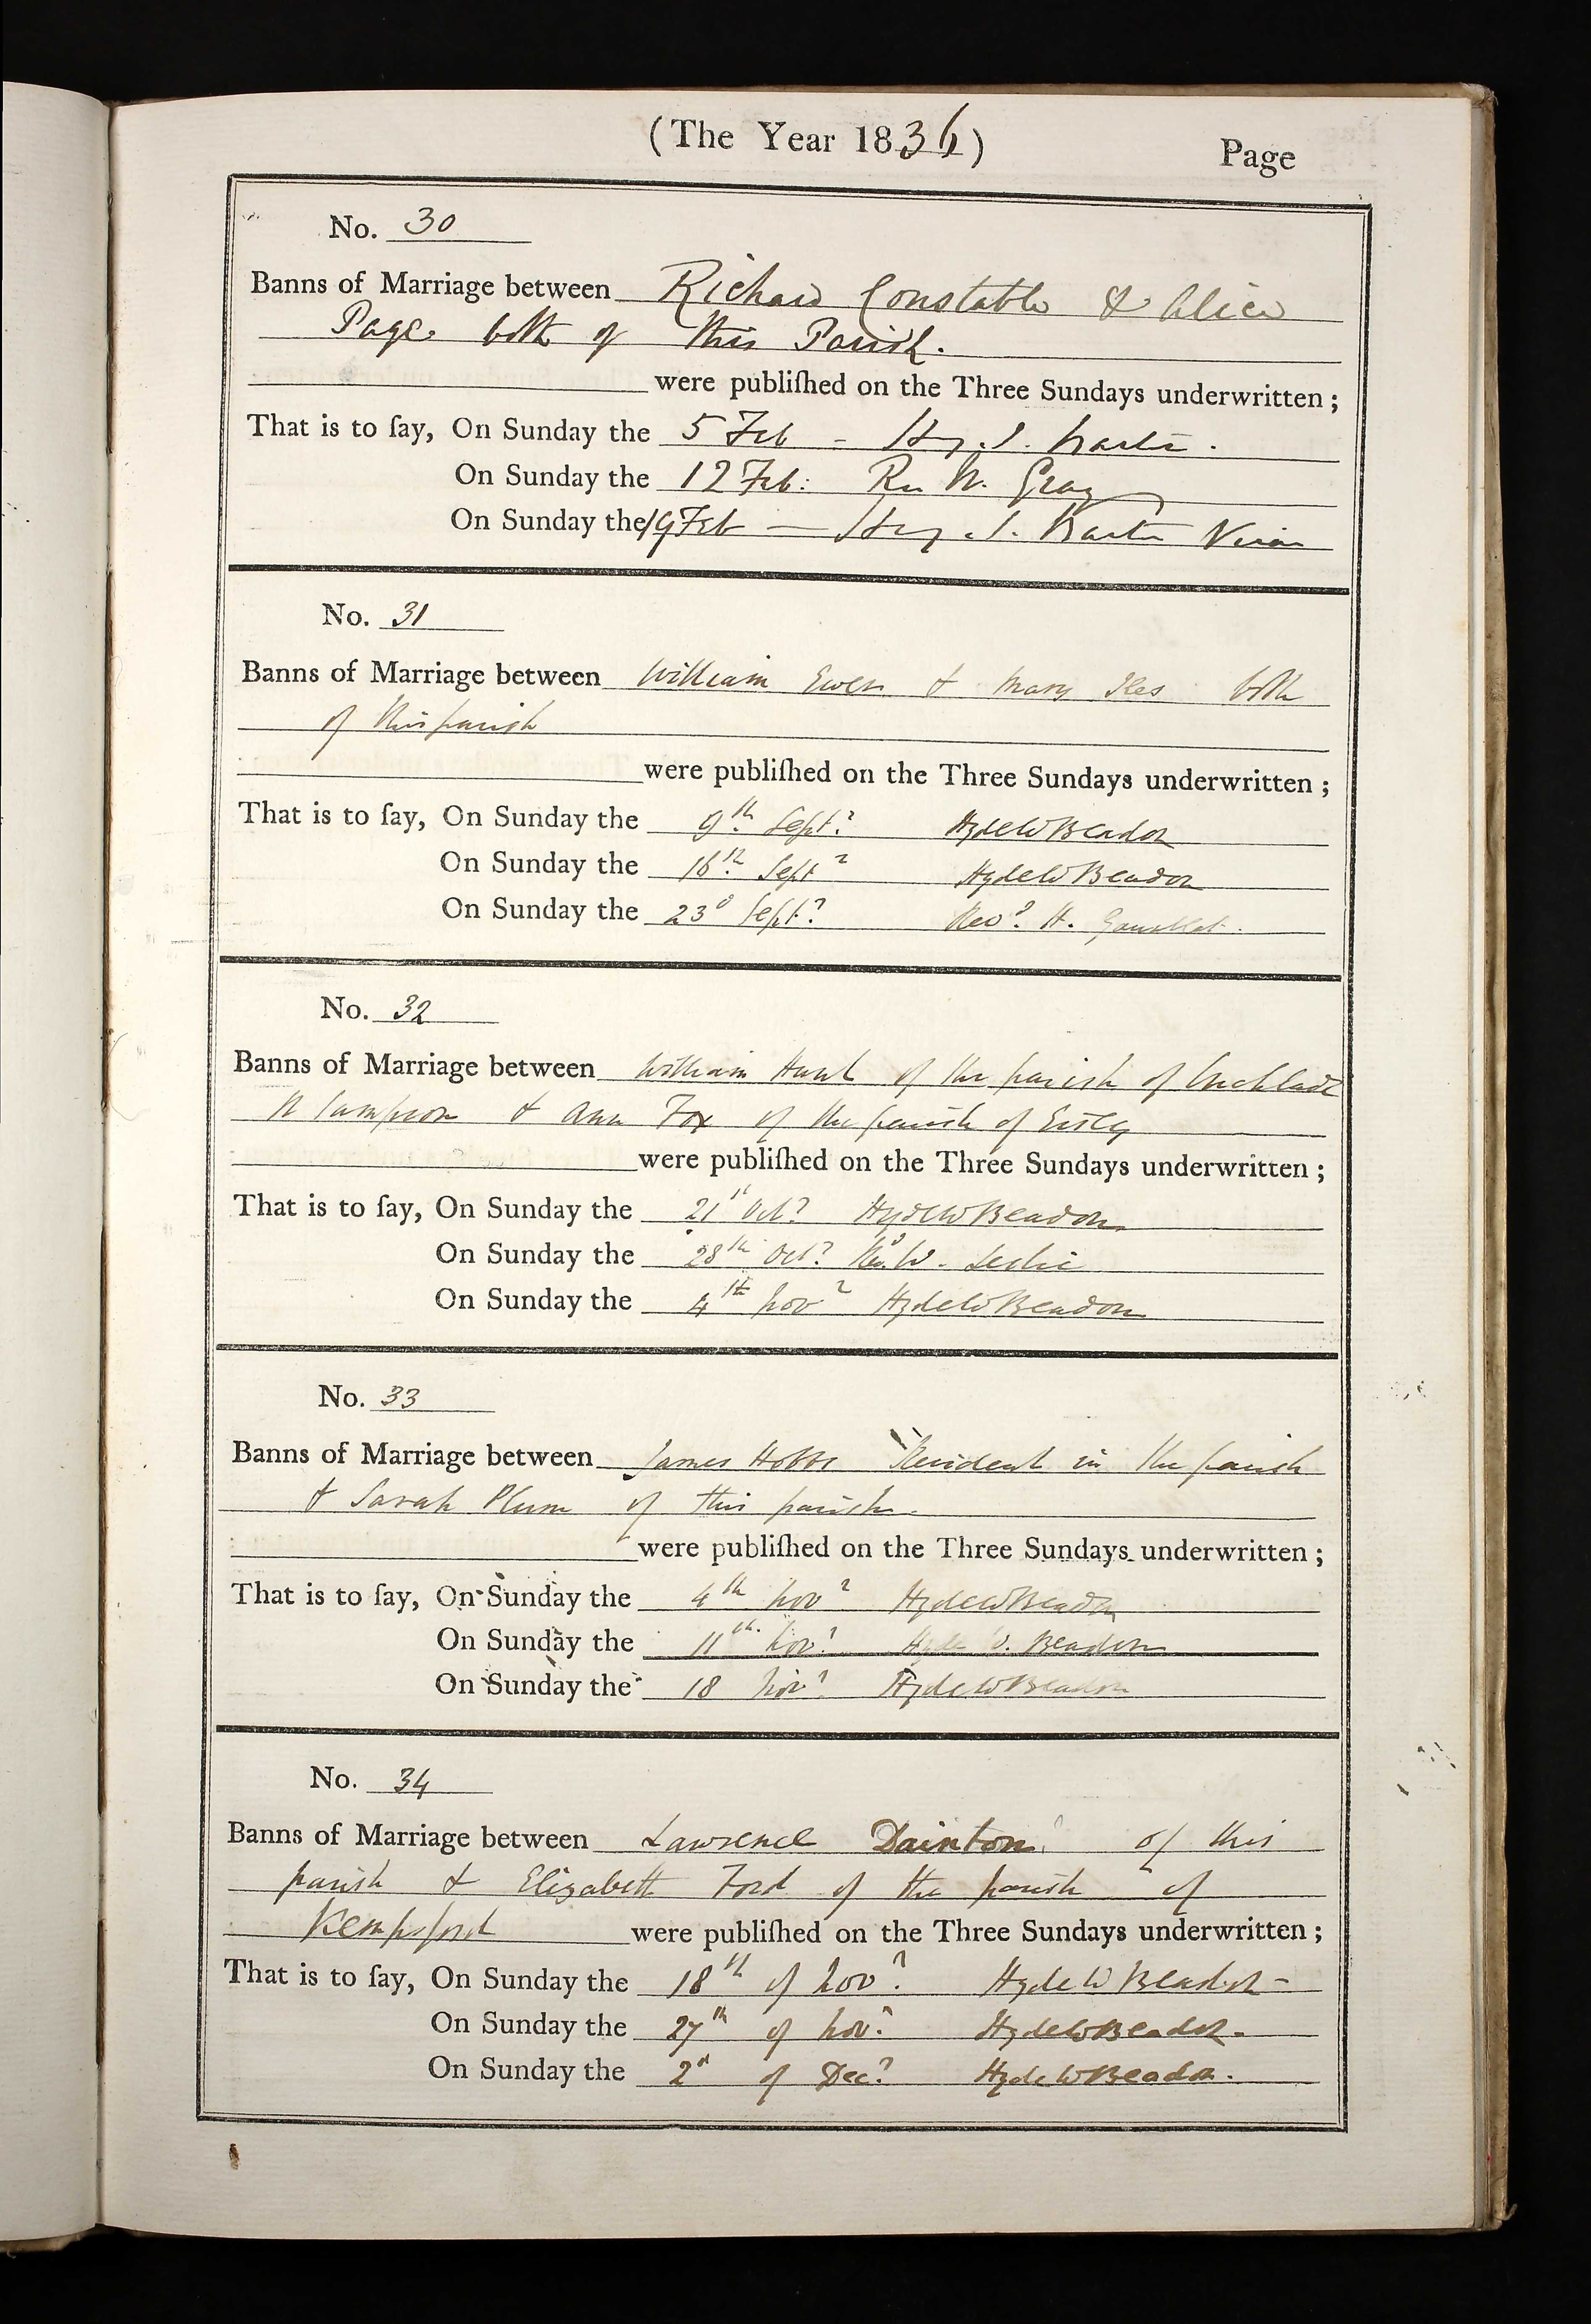 (The Year 1836)
Page
No. 30
Banns of Marriage between Richard Constable & Alice
Page both of this Parish.
were publiſhed on the Three Sundays underwritten;
That is to ſay, On Sunday the 5 Feb - Hy. J.
On Sunday the 12 Feb: W. Gray
On Sunday the 19 Feb — Hy. J.
No. 31
Banns of Marriage between William Ewen & Mary Iles both
of this parish
were publiſhed on the Three Sundays underwritten;
That is to ſay, On Sunday the 9th. Septr. Hyde W Beadon
On Sunday the 16th. Septr Hyde W Beadon
On Sunday the 23d Septr. Revd. H.
No. 32
Banns of Marriage between William Hunt of the parish of Cricklade
St Sampson & Ann Fox of the parish of Eisey
were publiſhed on the Three Sundays underwritten;
That is to ſay, On Sunday the 21st Octr. Hyde W Beadon
On Sunday the 28th Octr. Revd. W. Leslie
On Sunday the 4th Novr Hyde W Beadon
No. 33
Banns of Marriage between James Hobbs Resident in the parish
& Sarah Plum of this parish.
were publiſhed on the Three Sundays underwritten;
That is to ſay, On Sunday the 4th Novr Hyde W Beadon
On Sunday the 11th. Novr. Hyde W. Beadon
On Sunday the 18 Novr. Hyde W Beadon
No. 34
Banns of Marriage between Lawrence Dainton of this
parish & Elizabeth Ford of the parish of
Kempsford were publiſhed on the Three Sundays underwritten;
That is to ſay, On Sunday the 18th of Novr. Hyde W Beadon -
On Sunday the 27th of Novr. Hyde W Beadon.
On Sunday the 2d of Decr. Hyde W Beadon.